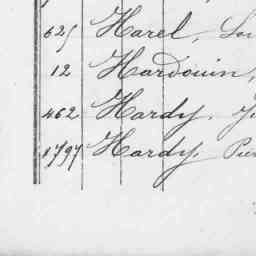 625 Harel,
12 Hardouin,
462 Hardy,
1797 Hardy,